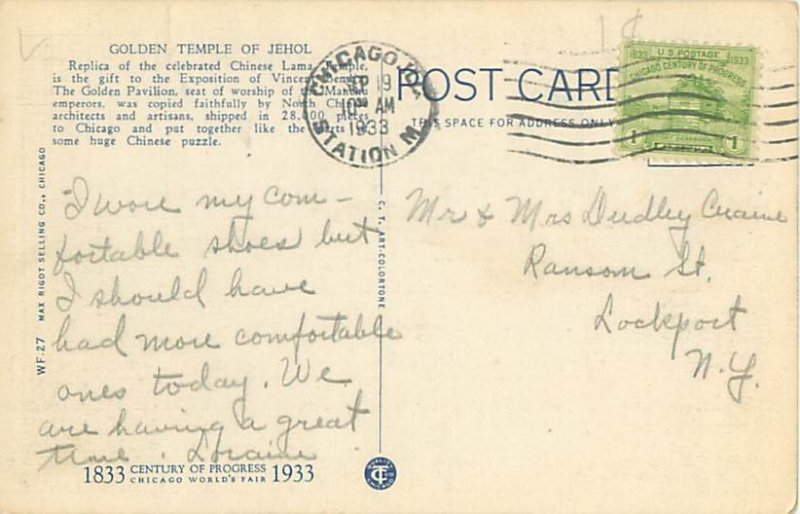 GOLDEN TEMPLE OF JEHOL
Replica of the celebrated Chinese Lama Temple,
is the gift to the Exposition of Vincent
The Golden Pavilion, seat of worship of the Manchu
emperors, was copied faithfully by North
architects and artisans, shipped in 28,000 pieces
to Chicago and put together like the parts
some huge Chinese puzzle.
CHICAGO, ILL.
19
AM
1933
STATION M
POST CARD
THIS SPACE FOR ADDRESS ONLY
1¢
U.S. POSTAGE
1833 1933
CHICAGO CENTURY OF PROGRESS
1 1
I wore my com-
fortable shoes but
I should have
had more comfortable
ones today. We
are having a great
time. Loraine
Mr & Mrs Dudley
Ransom St.
Lockport
N.Y.
WF-27 MAX RIGOT SELLING CO., CHICAGO
C. T. ART-COLORTONE
1833 CENTURY OF PROGRESS 1933
CHICAGO WORLD'S FAIR